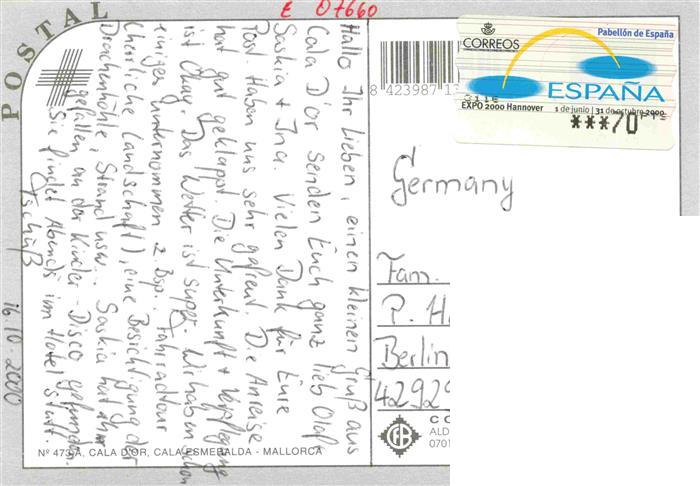 POSTAL
E 07660
Hallo Ihr Lieben, einen kleinen Gruß aus
Cala D'or senden Euch ganz lieb Olaf,
Saskia + Ina. Vielen Dank für Eure
Post. Haben uns sehr gefreut. Die Anreise
hat gut geklappt. Die Unterkunft + Verpflegung
ist Okay. Das Wetter ist super. Wir haben schon
einiges unternommen z. Bsp. Fahrradtour
(herrliche Landschaft), eine Besichtigung der
Drachenhöhle, Strand usw.. Saskia hat ihr
gefallen an der Kinder-Disco gefunden.
Sie findet Abends im Hotel statt.
Tschüß
16.10.2000
Nº 473-A, CALA D'OR, CALA ESMERALDA - MALLORCA
8 423987 13
CORREOS
Pabellón de España
ESPAÑA
EXPO 2000 Hannover
1 de junio | 31 de octubre 2000
***70 PTS
Germany
Fam.
P. H
Berlin
42929
CO
ALD
0701